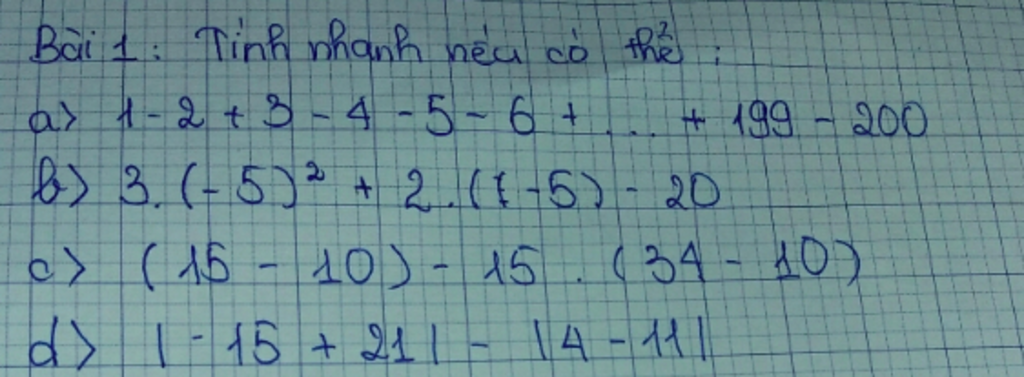 Bài 1: Tính nhanh nếu có thể:
a> 1 - 2 + 3 - 4 - 5 - 6 + ... + 199 - 200
b> 3. (-5)² + 2. ((-5) - 20
c> (15 - 10) - 15 . (34 - 10)
d> |-15 + 21| - |4 - 11|